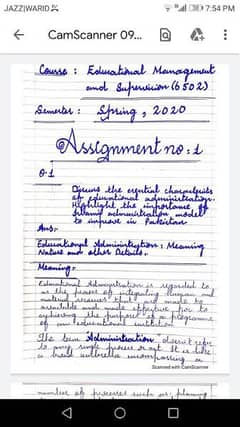 JAZZ|WARID
7:54 PM
CamScanner 09...
Course: Educational Management
and Supervision (6502)
Semester: Spring, 2020
Assignment no: 1
Q.1
Discuss the essential
of educational administration.
Highlight the importance of
administration model
to improve in Pakistan
Ans:
Educational Administration: Meaning
Nature and other Details.
Meaning:
Educational Administration is regarded to
as the process of integrating
material
available and made effective for to
achieving the purpose of a programme
of an educational institution
The term "Administration" doesn't refer
to any single process or act. It is like
a broad umbrella encompassing a
Scanned with CamScanner
number of processes such as: planning